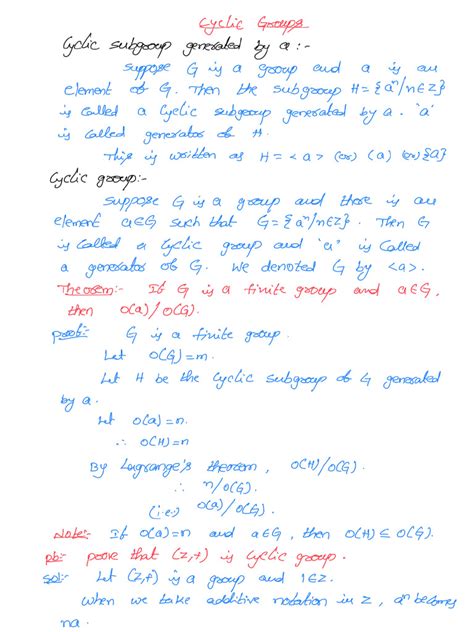 Cyclic Groups
Cyclic subgroup generated by a :-
Suppose G is a group and a is an
element of G. Then the subgroup H = {aⁿ/n∈Z}
is called a cyclic subgroup generated by a. 'a'
is called generator of H.
This is written as H = <a> (or) (a) (or) {a}
Cyclic group:-
Suppose G is a group and there is an
element a∈G such that G = {aⁿ/n∈Z}. Then G
is called a cyclic group and 'a' is called
a generator of G. We denoted G by <a>.
Theorem:- If G is a finite group and a∈G,
then O(a)/O(G).
proof:- G is a finite group.
Let O(G)=m.
Let H be the cyclic subgroup of G generated
by a.
Let O(a)=n.
∴ O(H)=n
By Lagrange's theorem, O(H)/O(G).
∴ n/O(G).
(i.e.) O(a)/O(G).
Note:- If O(a)=n and a∈G, then O(H) ≤ O(G).
pb:- prove that (Z,+) is cyclic group.
Sol:- Let (Z,+) is a group and 1∈Z.
when we take additive notation in Z, aⁿ becomes
na.